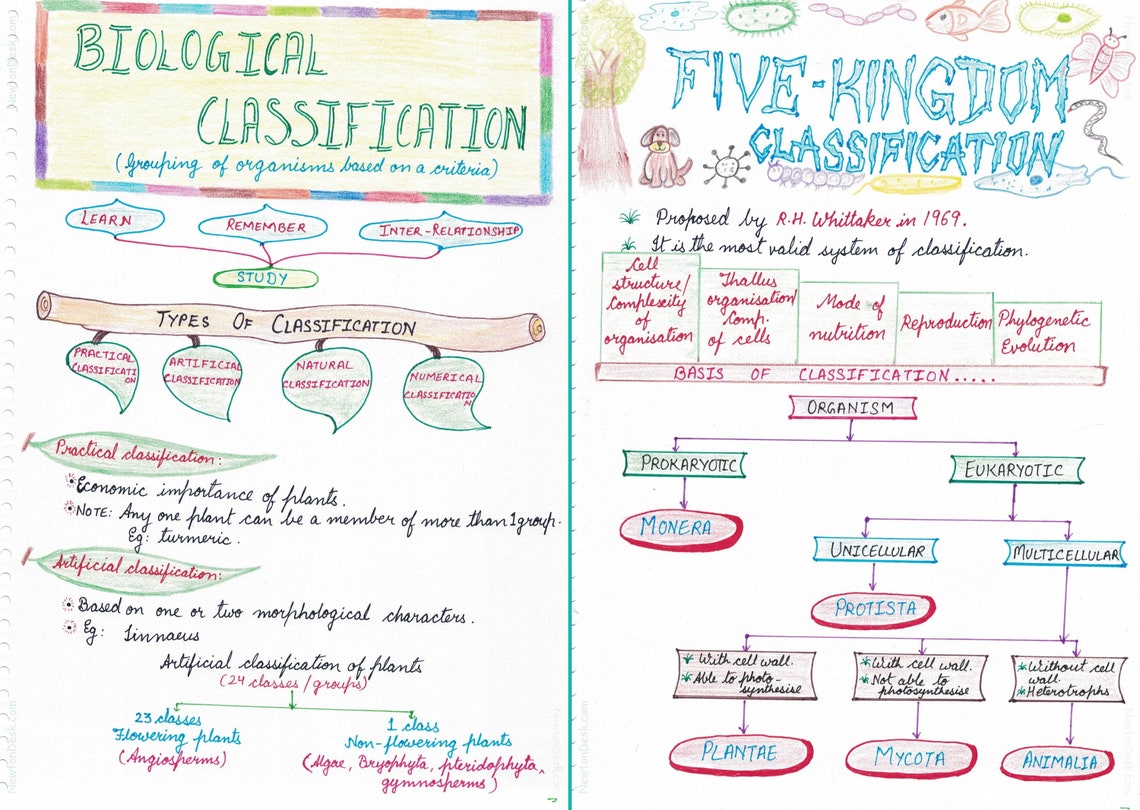 BIOLOGICAL
CLASSIFICATION
(Grouping of organisms based on a criteria)
LEARN
REMEMBER
INTER-RELATIONSHIP
STUDY
TYPES OF CLASSIFICATION
PRACTICAL
CLASSIFICATI
ON
ARTIFICIAL
CLASSIFICATION
NATURAL
CLASSIFICATION
NUMERICAL
CLASSIFICATIO
N
Practical classification:
Economic importance of plants.
NOTE: Any one plant can be a member of more than 1 group.
Eg: turmeric.
Artificial classification:
Based on one or two morphological characters.
Eg: Linnaeus
Artificial classification of plants
(24 classes / groups)
23 classes
Flowering plants
(Angiosperms)
1 class
Non-flowering plants
(Algae, Bryophyta, pteridophyta,
gymnosperms)
NewtonDesk.com
FIVE-KINGDOM
CLASSIFICATION
Proposed by R.H. Whittaker in 1969.
It is the most valid system of classification.
Cell
structure/
Complexity
of
organisation
Thallus
organisation/
Comp.
of cells
Mode of
nutrition
Reproduction
Phylogenetic
Evolution
BASIS OF CLASSIFICATION.....
ORGANISM
PROKARYOTIC
EUKARYOTIC
MONERA
UNICELLULAR
MULTICELLULAR
PROTISTA
With cell wall.
Able to photo-
synthesise
With cell wall.
Not able to
photosynthesise
Without cell
wall.
Heterotrophs
PLANTAE
MYCOTA
ANIMALIA
NewtonDesk.com